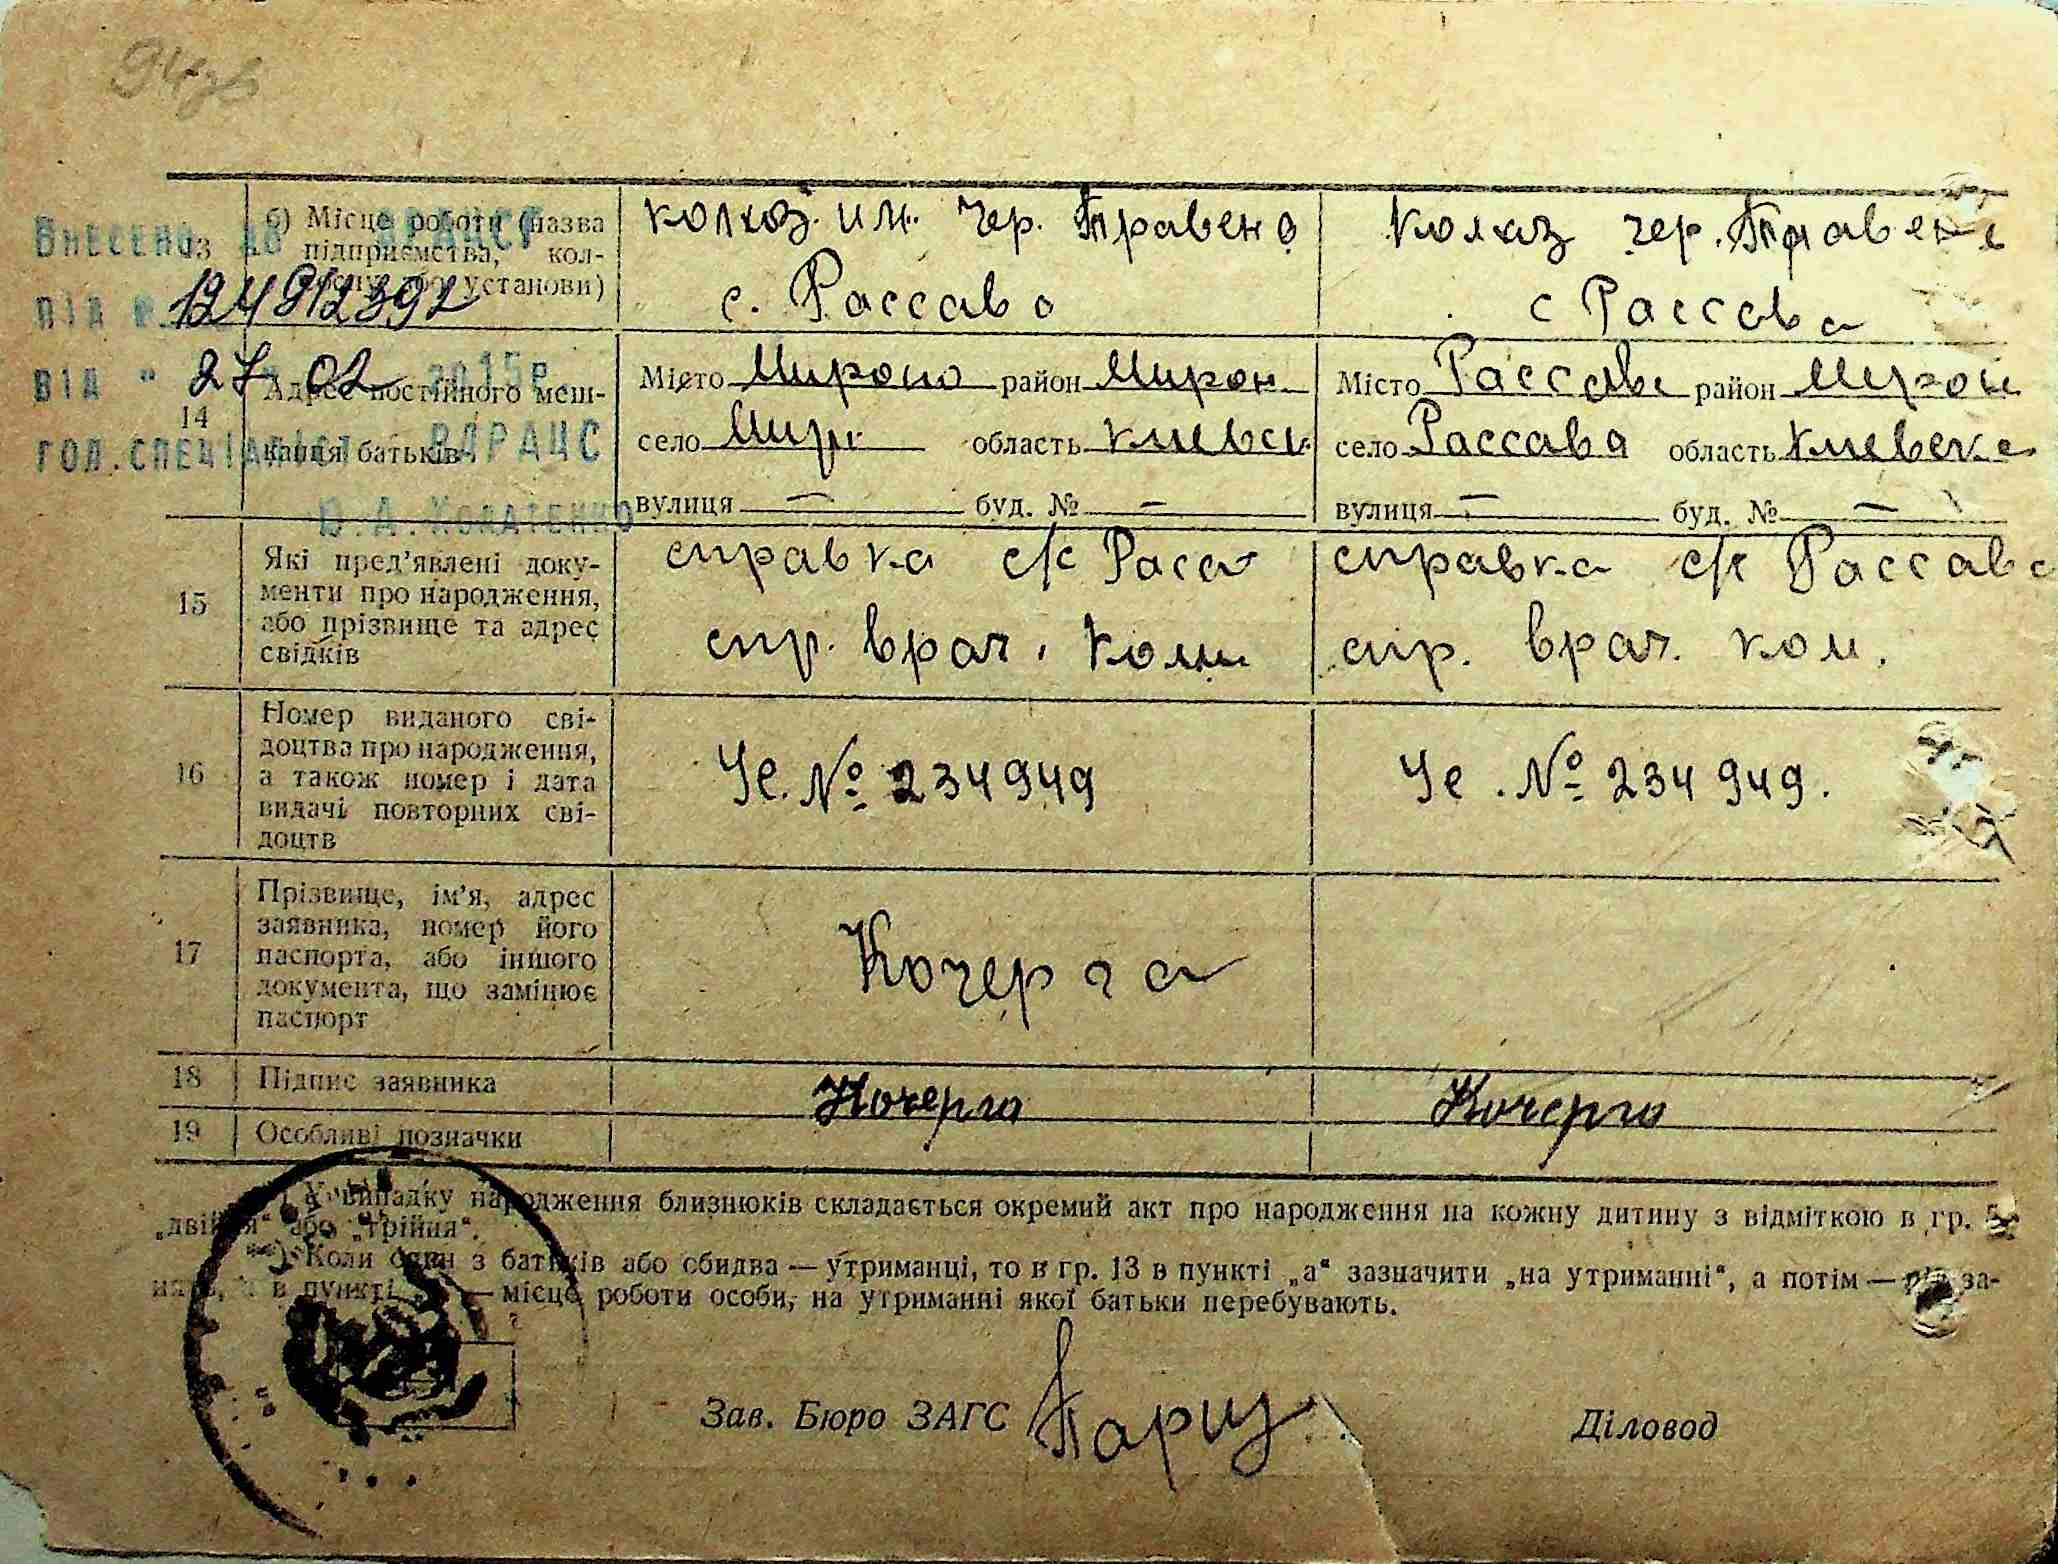 13 б) Місце роботи (назва підприємства, кол-
госпу або установи)
колхоз. им. Чер. Травена
с. Рассава
Колхоз чер. Травене
с Рассава
Внесено до ДРАЦСГ
від №
124912392
від " 27 02 2015р.
гол. спеціаліст ВДРАЦС
14 Адрес постійного меш-
кання батьків
Місто Мироно район Мирон
село Мир область Киевск
вулиця — буд. № —
Місто Рассаве район Мирон
село Рассава область Киевска
вулиця — буд. № —
15 Які пред'явлені доку-
менти про народження,
або прізвище та адрес
свідків
справка с/с Расса
спр. врач. Ком
справка с/с Рассава
спр. врач. ком.
16 Номер виданого сві-
доцтва про народження,
а також номер і дата
видачі повторних сві-
доцтв
Че. № 234949
Че. № 234949.
17 Прізвище, ім'я, адрес
заявника, номер його
паспорта, або іншого
документа, що замінює
паспорт
Кочерга
18 Підпис заявника
Кочерга
Кочерга
19 Особливі позначки
*) У випадку народження близнюків складається окремий акт про народження на кожну дитину з відміткою в гр. 5
„двійня“ або „трійня“.
**) Коли один з батьків або обидва — утриманці, то в гр. 13 в пункті „а“ зазначити „на утриманні“, а потім — рід за-
нять, а в пункті — місце роботи особи, на утриманні якої батьки перебувають.
Зав. Бюро ЗАГС
Діловод